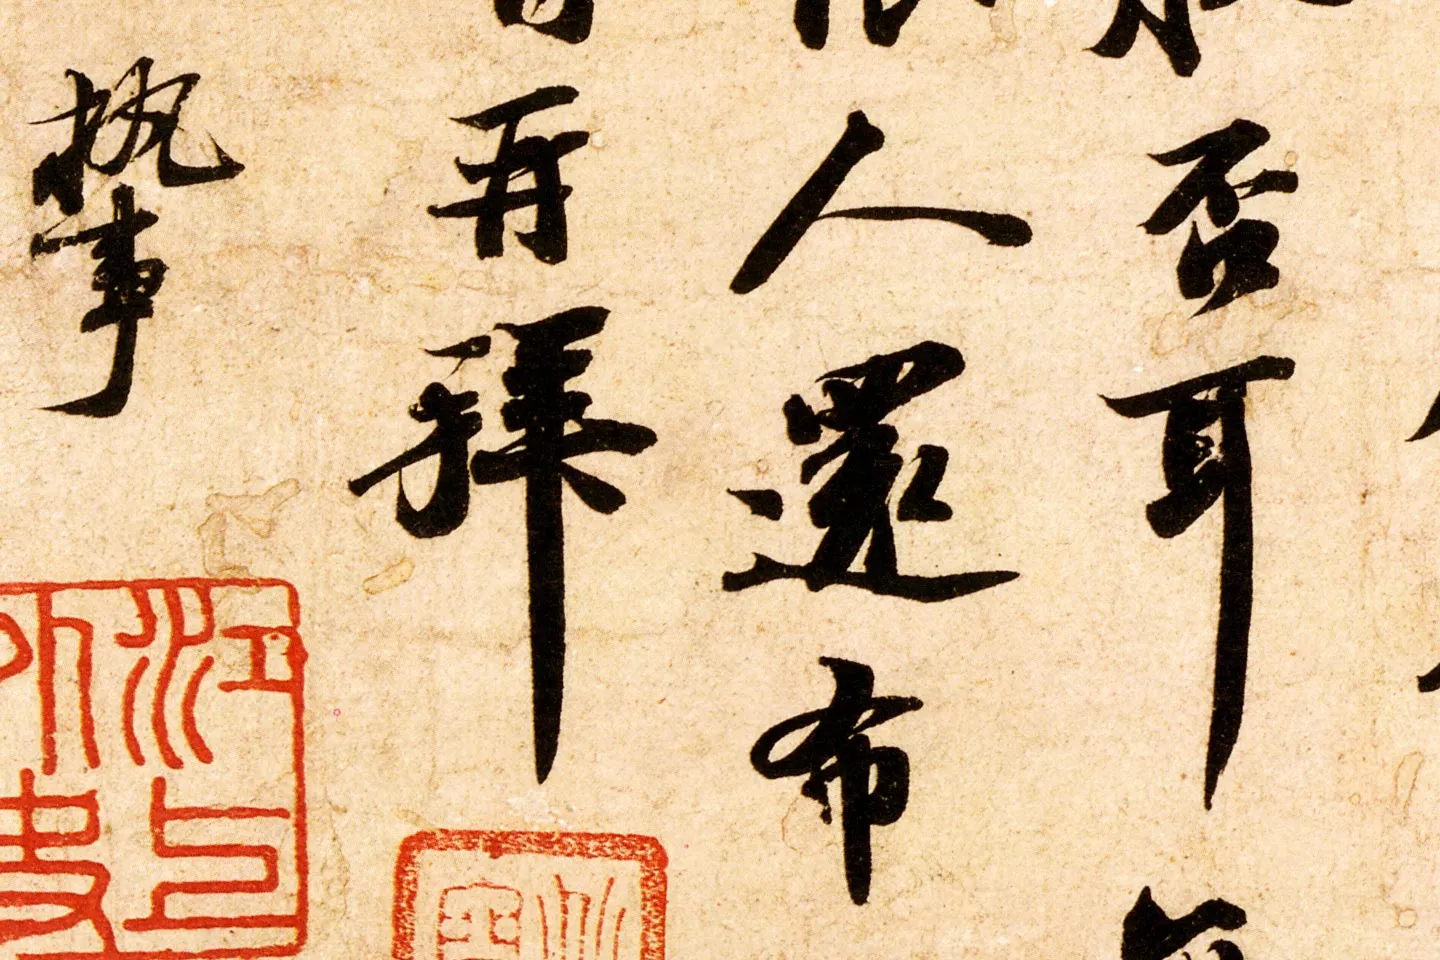 否耳
人還布
再拜
執事
江上
外史